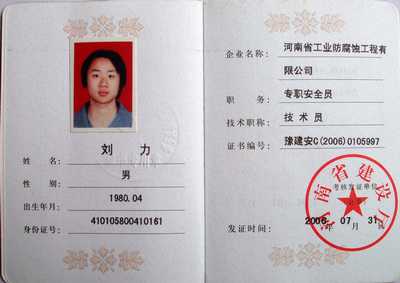 刘 力
姓 名：
男
性 别：
1980.04
出生年月：
410105800410161
身份证号：
企业名称：河南省工业防腐蚀工程有
限公司
职 务：专职安全员
技术职称：技 术 员
证书编号：豫建安C(2006)0105997
河南省建设厅
考核发证单位
发证时间：2006年 07月 31日